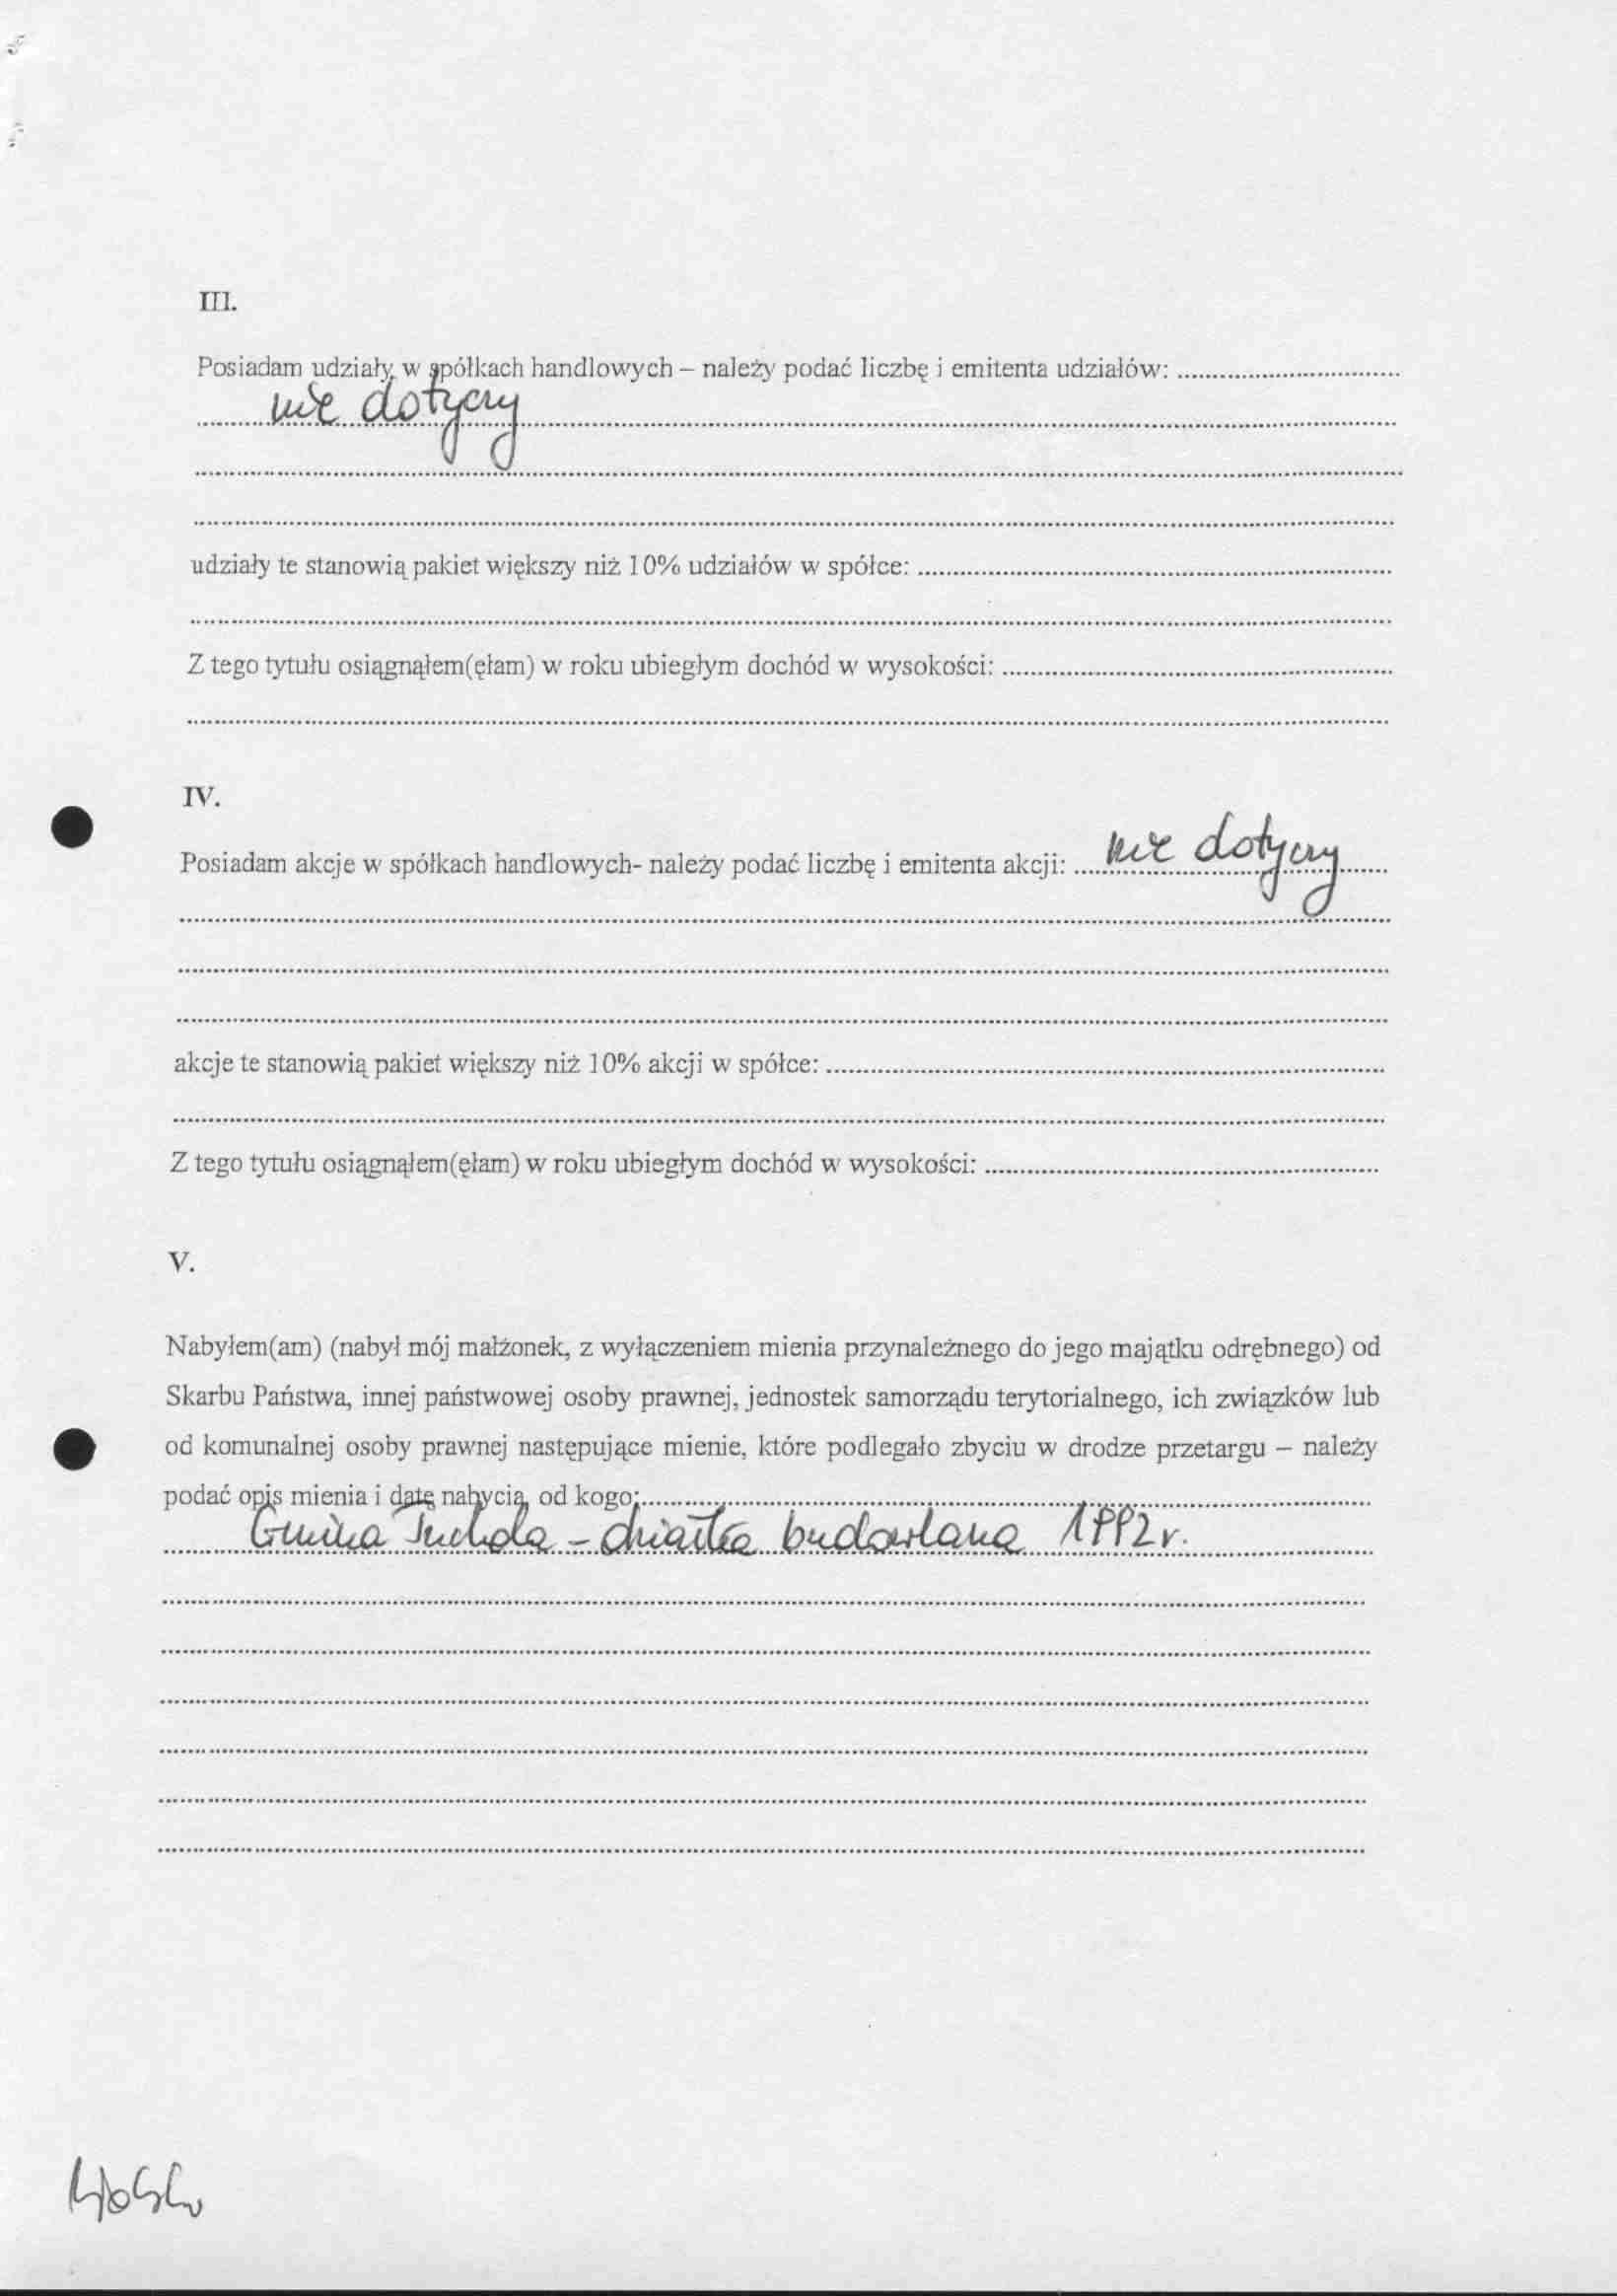 III.
Posiadam udziały w spółkach handlowych – należy podać liczbę i emitenta udziałów: ................................
nie dotyczy
udziały te stanowią pakiet większy niż 10% udziałów w spółce: ................................
Z tego tytułu osiągnąłem(ęłam) w roku ubiegłym dochód w wysokości: ................................
IV.
Posiadam akcje w spółkach handlowych- należy podać liczbę i emitenta akcji: nie dotyczy
akcje te stanowią pakiet większy niż 10% akcji w spółce: ................................
Z tego tytułu osiągnąłem(ęłam) w roku ubiegłym dochód w wysokości: ................................
V.
Nabyłem(am) (nabył mój małżonek, z wyłączeniem mienia przynależnego do jego majątku odrębnego) od
Skarbu Państwa, innej państwowej osoby prawnej, jednostek samorządu terytorialnego, ich związków lub
od komunalnej osoby prawnej następujące mienie, które podlegało zbyciu w drodze przetargu – należy
podać opis mienia i datę nabycia, od kogo: ................................
Gmina Tuchola – działka budowlana 1992 r.